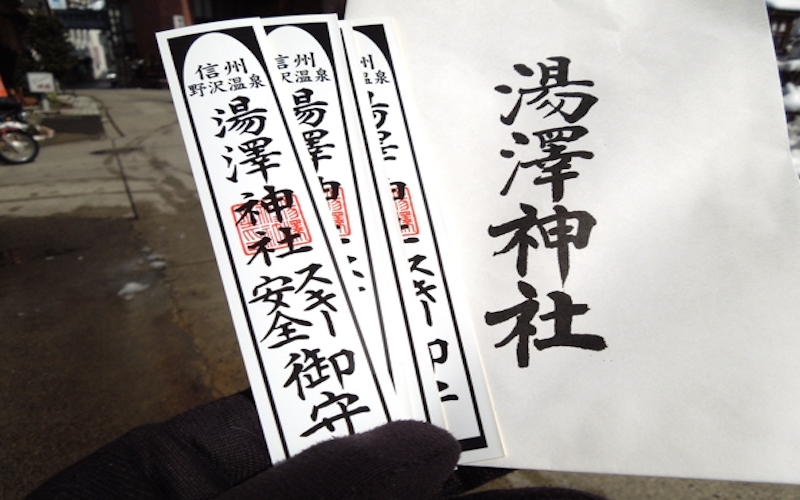 信州
野沢温泉
湯澤神社
スキー
安全
御守
信州
野沢温泉
湯澤神
州
温泉
スキー
湯澤神社